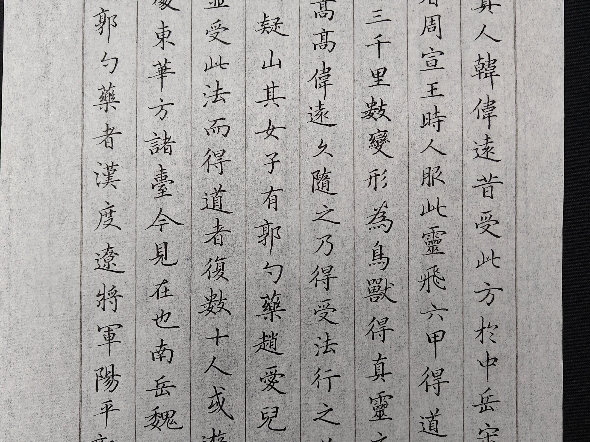 真人韓偉遠昔受此方於中岳宋
周宣王時人服此靈飛六甲得道
三千里數變形為鳥獸得真靈
嵩高偉遠久隨之乃得受法行之
疑山其女子有郭勺藥趙愛兒
受此法而得道者復數十人或遊
東華方諸臺今見在也南岳魏
郭勺藥者漢度遼將軍陽平